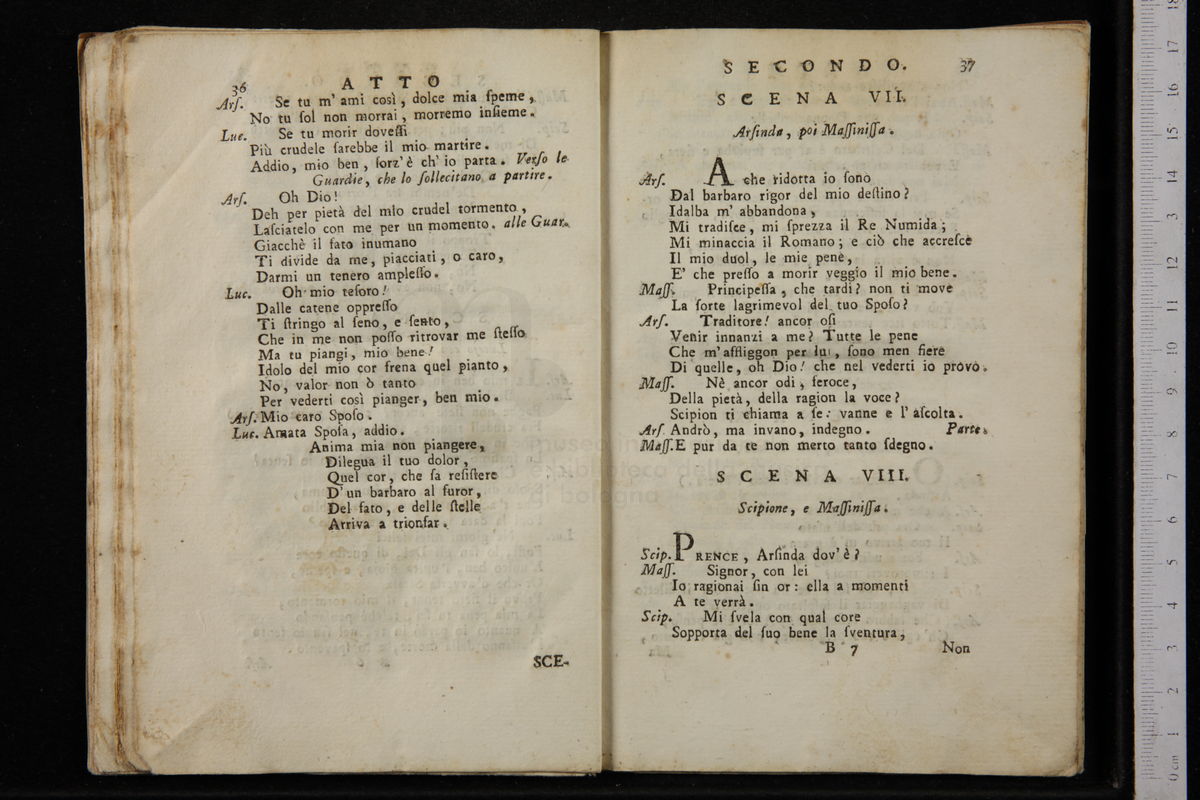 36 ATTO
Arſ. Se tu m' ami così, dolce mia ſpeme,
No tu ſol non morrai, morremo inſieme.
Luc. Se tu morir doveſſi
Più crudele ſarebbe il mio martire.
Addio, mio ben, forz' è ch' io parta. Verſo le
Guardie, che lo ſollecitano a partire.
Arſ. Oh Dio!
Deh per pietà del mio crudel tormento,
Laſciatelo con me per un momento. alle Guar.
Giacchè il fato inumano
Ti divide da me, piacciati, o caro,
Darmi un tenero ampleſſo.
Luc. Oh mio teſoro!
Dalle catene oppreſſo
Ti ſtringo al ſeno, e ſento,
Che in me non poſſo ritrovar me ſteſſo
Ma tu piangi, mio bene!
Idolo del mio cor frena quel pianto,
No, valor non ò tanto
Per vederti così pianger, ben mio.
Arſ. Mio caro Spoſo.
Luc. Amata Spoſa, addio.
Anima mia non piangere,
Dilegua il tuo dolor,
Quel cor, che ſa reſiſtere
D' un barbaro al furor,
Del fato, e delle ſtelle
Arriva a trionfar.
SCE-
SECONDO. 37
SCENA VII.
Arſinda, poi Maſſiniſſa.
Arſ. A che ridotta io ſono
Dal barbaro rigor del mio deſtino?
Idalba m' abbandona,
Mi tradiſce, mi ſprezza il Re Numida;
Mi minaccia il Romano; e ciò che accreſce
Il mio duol, le mie pene,
E' che preſſo a morir veggio il mio bene.
Maſſ. Principeſſa, che tardi? non ti move
La ſorte lagrimevol del tuo Spoſo?
Arſ. Traditore! ancor oſi
Venir innanzi a me? Tutte le pene
Che m' affliggon per lui, ſono men fiere
Di quelle, oh Dio! che nel vederti io provo.
Maſſ. Nè ancor odi, feroce,
Della pietà, della ragion la voce?
Scipion ti chiama a ſe: vanne e l' aſcolta.
Arſ. Andrò, ma invano, indegno. Parte.
Maſſ. E pur da te non merto tanto ſdegno.
SCENA VIII.
Scipione, e Maſſiniſſa.
Scip. PRENCE, Arſinda dov' è?
Maſſ. Signor, con lei
Io ragionai fin or: ella a momenti
A te verrà.
Scip. Mi ſvela con qual core
Sopporta del ſuo bene la ſventura,
B 7 Non